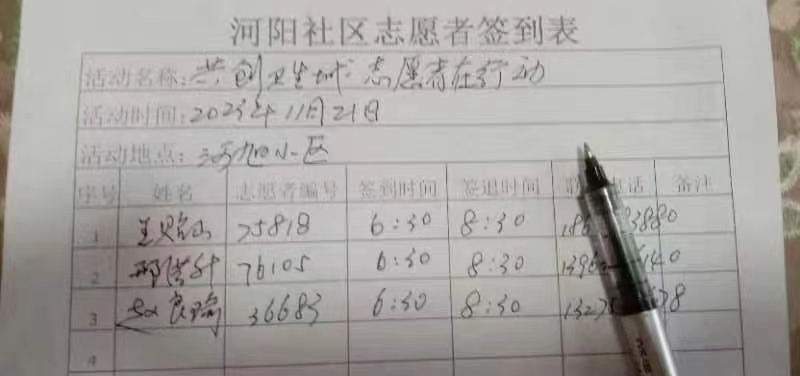 河阳社区志愿者签到表
活动名称:共创卫生城 志愿者在行动
活动时间:2023年11月21日
活动地点:河旭小区
序号 姓名 志愿者编号 签到时间 签退时间 电话 备注
1 75818 6:30 8:30
2 76105 6:30 8:30
3 赵良瑞 36683 6:30 8:30
4